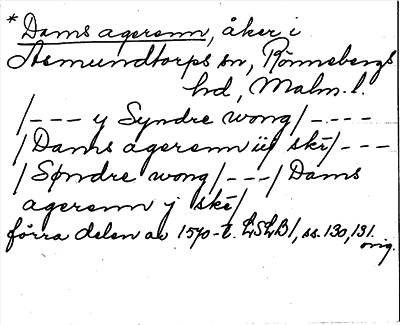 *Dams agerenn, åker i
Asmundtorps sn, Rönnebergs
hd, Malm. l.
/--- y Syndre wong/----
/Dams agerenn iij skr/---
/Søndre wong/---/Dams
agerenn j skr/
förra delen av 1570-t. LSLB1, ss. 130, 131.
orig.